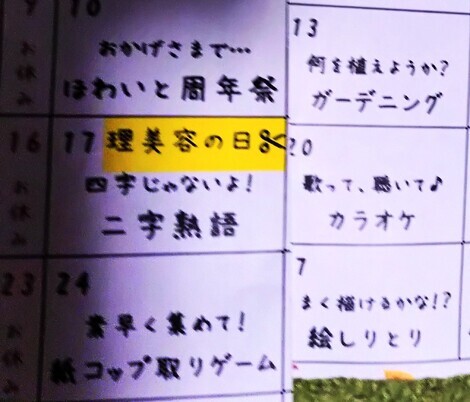 9
お休み
10
おかげさまで…
ほわいと周年祭
16
お休み
17 理美容の日
四字じゃないよ!
二字熟語
23
お休み
24
素早く集めて!
紙コップ取りゲーム
13
何を植えようか?
ガーデニング
20
歌って、聴いて♪
カラオケ
7
まく描けるかな!?
絵しりとり